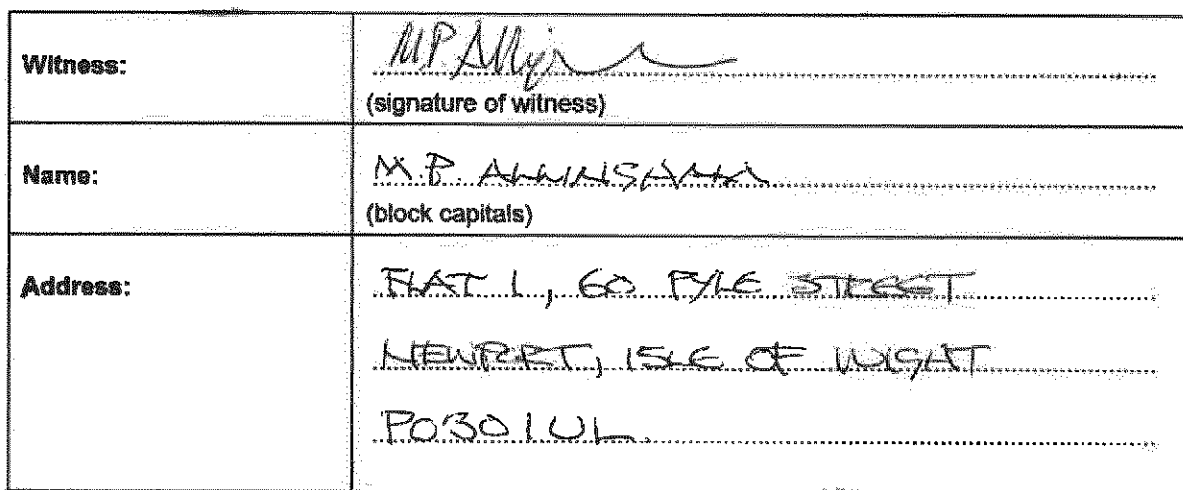 Witness:
M.P. Alling
(signature of witness)
Name:
M.P. ALLINGHAM
(block capitals)
Address:
FLAT 1, 60 PYLE STREET
NEWPORT, ISLE OF WIGHT
PO30 1UL.